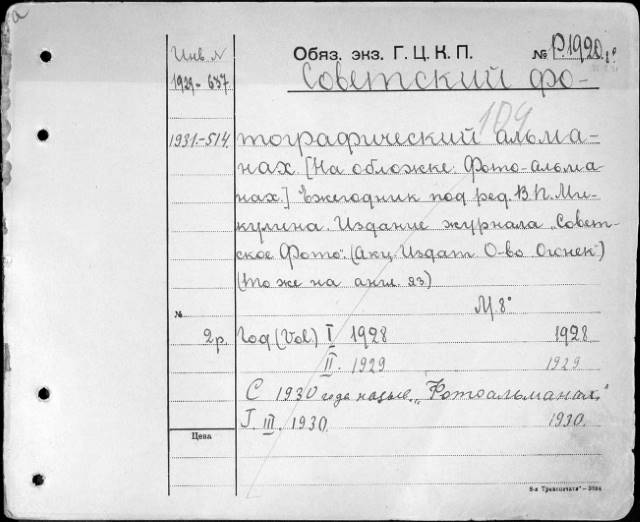 Инв. N
Обяз. экз. Г. Ц. К. П. № Р.1920
1929-637
Советский фо-
104
1931-514 тографический альма-
нах. [На обложке: Фото-альма
нах.] Ежегодник под ред. В. П. Ми-
кулина. Издание журнала „Совет-
ское Фото“. (Акц. Издат. О-во Огонек“)
(то же на англ. яз)
М. 8°
№
2 р. Год (Vol.) I 1928 1928
II. 1929 1929
С 1930 года назыв. „Фотоальманах.“
Г. III. 1930. 1930.
Цена